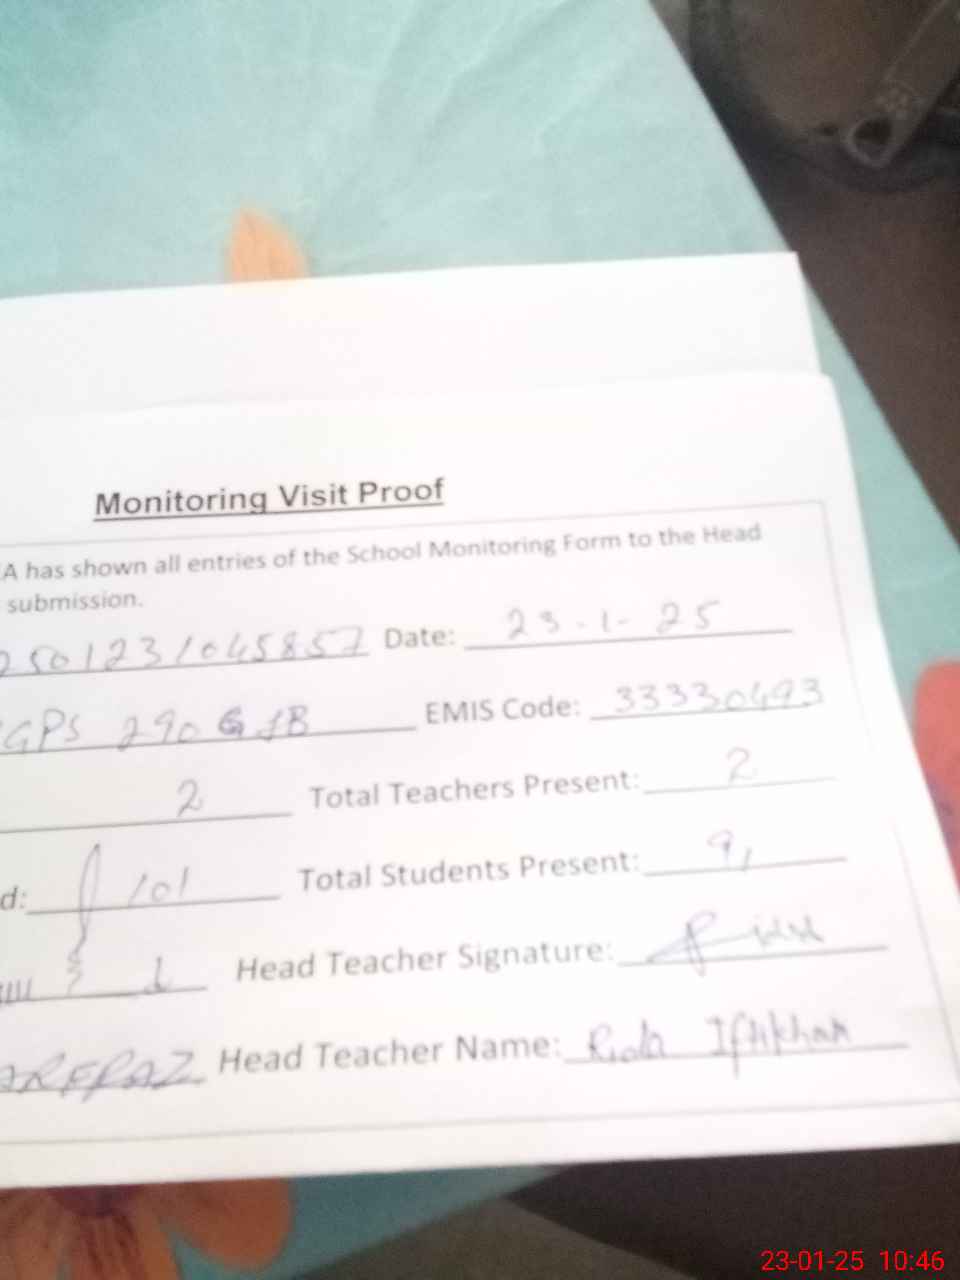 Monitoring Visit Proof
A has shown all entries of the School Monitoring Form to the Head
submission.
2501231045857 Date: 23-1-25
GPS 290 GB EMIS Code: 33330493
2 Total Teachers Present: 2
d: 101 Total Students Present: 91
Head Teacher Signature:
Head Teacher Name: Rida Iftikhar
23-01-25 10:46